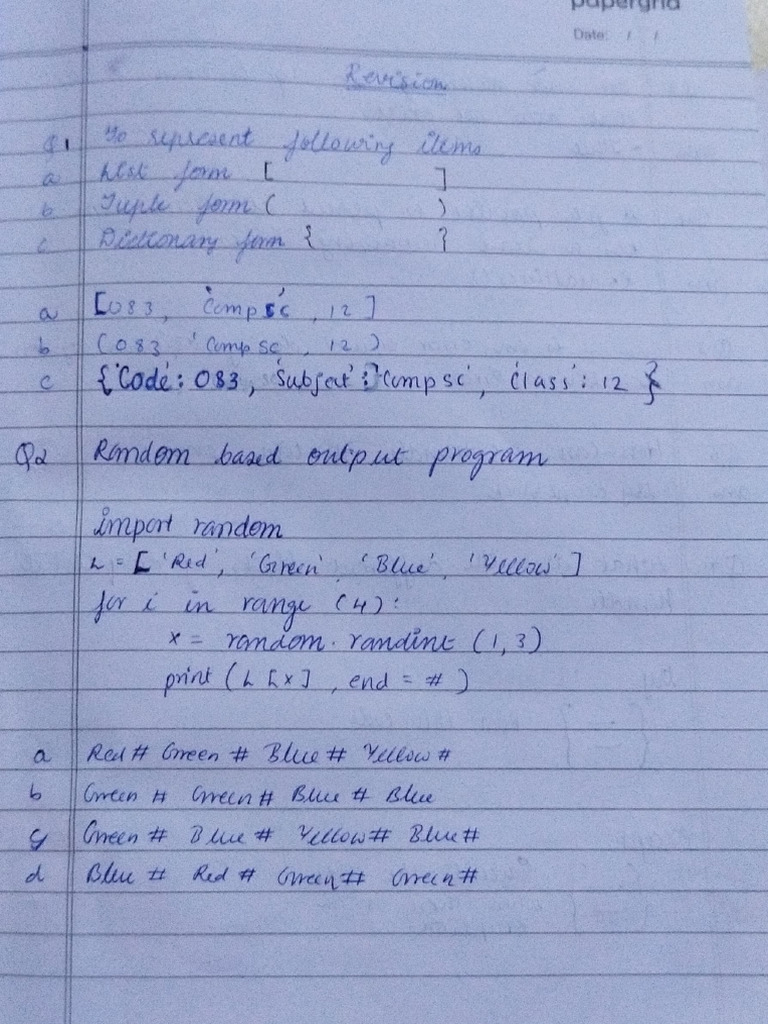 papergrid
Date: / /
Revision
Q1 To represent following items
a List form [ ]
b Tuple form ( )
c Dictionary form { }
a [083, 'Comp sc', 12]
b (083 'Comp sc, 12)
c {'Code': 083, 'Subject': 'Comp sc', 'Class': 12 }
Q2 Random based output program
import random
L = ['Red', 'Green', 'Blue', 'Yellow']
for i in range (4):
x = random.randint (1,3)
print (L [x], end = # )
a Red # Green # Blue # Yellow #
b Green # Green # Blue # Blue
c Green # Blue # Yellow # Blue #
d Blue # Red # Green # Green #